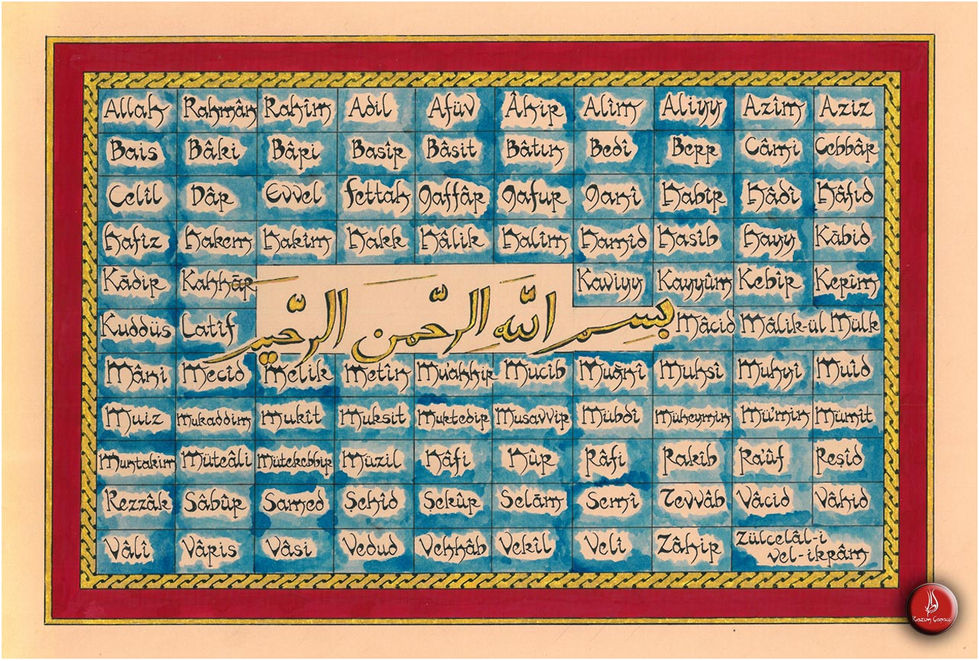 Allah Rahmân Rahîm Adil Afüv Âhir Alîm Aliyy Azîm Aziz
Bais Bâki Bâri Basîr Bâsit Bâtın Bedî Berr Câmi Cebbâr
Celîl Dâr Evvel Fettah Gaffâr Gafur Ganî Habîr Hâdî Hâfıd
Hafiz Hakem Hakîm Hakk Hâlik Halîm Hamid Hasîb Hayy Kābid
Kādir Kahhār Kaviyy Kayyûm Kebîr Kerîm
بسم الله الرحمن الرحيم
Kuddüs Latîf Mâcid Mâlik-ül Mülk
Mâni Mecîd Melik Metin Muahhir Mucib Muğnî Muhsî Muhyi Muid
Muiz Mukaddim Mukît Muksit Muktedir Musavvir Mübdî Müheymin Mü'min Mümît
Müntakim Müteâli Mütekebbir Müzil Nâfi Nûr Râfi Rakîb Ra'ûf Reşîd
Rezzâk Sâbûr Samed Şehîd Şekûr Selâm Semî Tevvâb Vâcid Vâhid
Vâlî Vâris Vâsi Vedud Vehhâb Vekîl Velî Zâhir Zülcelâl-i
vel-ikrâm